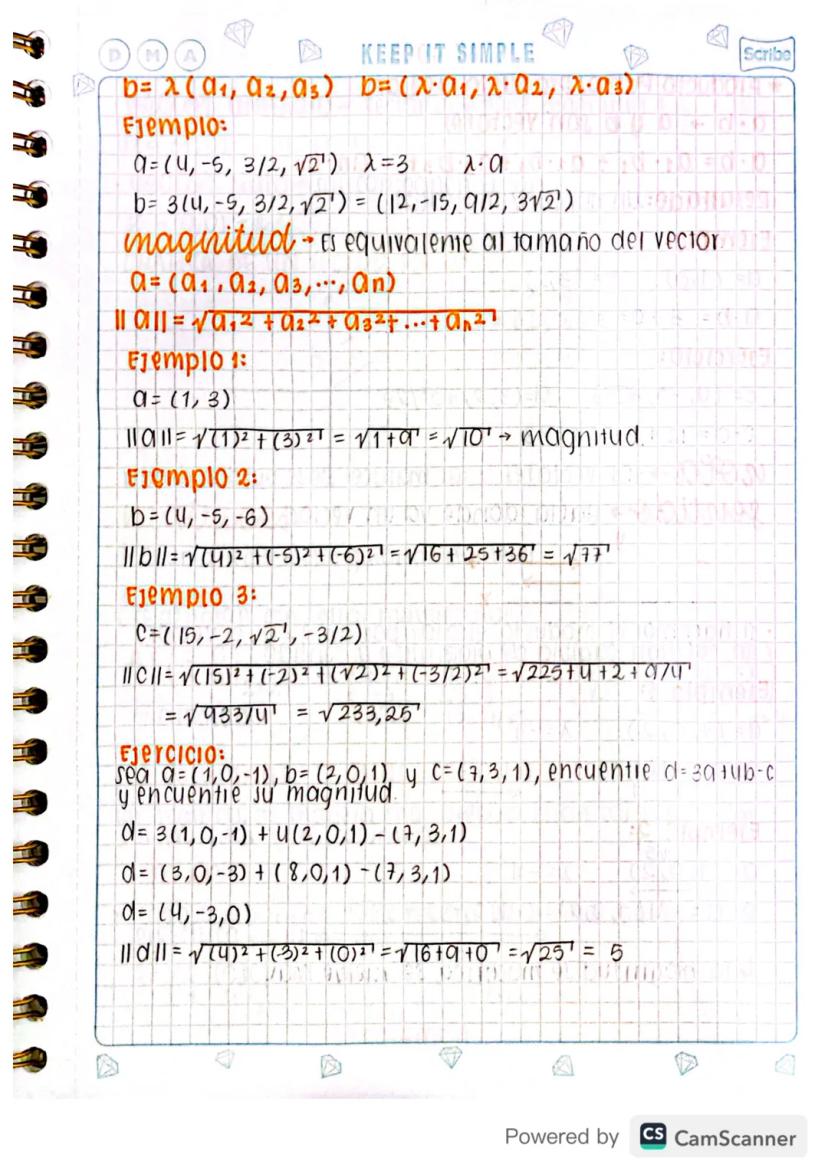 D M A KEEP IT SIMPLE Scribe
b= λ(a₁, a₂, a₃) b= (λ·a₁, λ·a₂, λ·a₃)
Ejemplo:
a=(4, -5, 3/2, √2) λ=3 λ·a
b= 3(4, -5, 3/2, √2) = (12, -15, 9/2, 3√2)
magnitud → Es equivalente al tamaño del vector
a= (a₁, a₂, a₃, ..., an)
||a||= √a₁² + a₂² + a₃² + ... + aₙ²
Ejemplo 1:
a= (1, 3)
||a||= √(1)² + (3)² = √1+9 = √10 → magnitud
Ejemplo 2:
b= (4, -5, -6)
||b||= √(4)² + (-5)² + (-6)² = √16 + 25 + 36 = √77
Ejemplo 3:
c=(15, -2, √2, -3/2)
||c||= √(15)² + (-2)² + (√2)² + (-3/2)² = √225+4+2+9/4
= √933/4 = √233,25
Ejercicio:
sea a= (1,0,-1), b= (2,0,1) y c=(7,3,1), encuentre d=3a+4b-c
y encuentre su magnitud.
d= 3(1,0,-1) + 4(2,0,1) - (7,3,1)
d= (3,0,-3) + (8,0,1) - (7,3,1)
d= (4,-3,0)
||d||= √(4)² + (-3)² + (0)² = √16+9+0 = √25 = 5
Powered by CS CamScanner